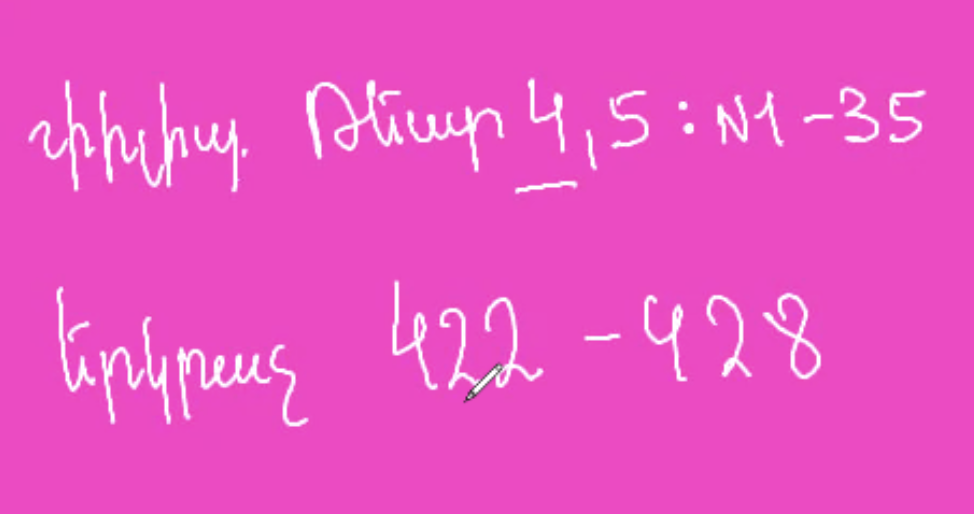 Ֆիզիկա. Թեստ 4,5: N1-35
Երկրաչ 422-428